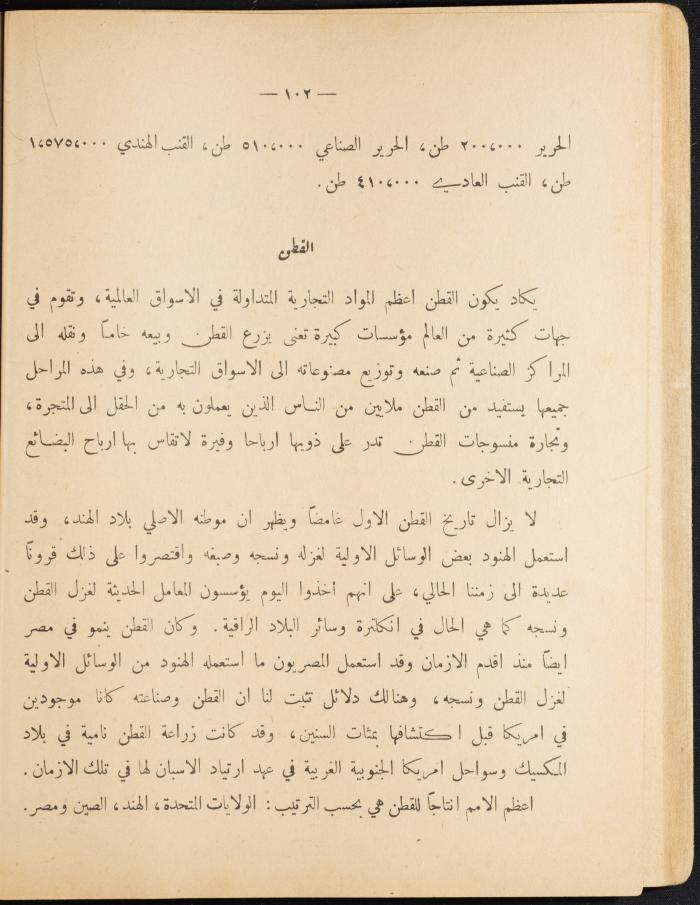 — ١٠٢ —
الحرير ٢٠٠،٠٠٠ طن، الحرير الصناعي ٥١٠،٠٠٠ طن، القنب الهندي ١،٥٧٥،٠٠٠
طن، القنب العادي ٤١٠،٠٠٠ طن.
القطن
يكاد يكون القطن اعظم المواد التجارية المتداولة في الاسواق العالمية، وتقوم في
جهات كثيرة من العالم مؤسسات كبيرة تعنى بزرع القطن وبيعه خاماً ونقله الى
المراكز الصناعية ثم صنعه وتوزيع مصنوعاته الى الاسواق التجارية، وفي هذه المراحل
جميعها يستفيد من القطن ملايين من الناس الذين يعملون به من الحقل الى المتجرة،
وتجارة منسوجات القطن تدر على ذويها ارباحا وفيرة لاتقاس بها ارباح البضائع
التجارية الاخرى.
لا يزال تاريخ القطن الاول غامضاً ويظهر ان موطنه الاصلي بلاد الهند، وقد
استعمل الهنود بعض الوسائل الاولية لغزله ونسجه وصبغه واقتصروا على ذلك قروناً
عديدة الى زمننا الحالي، على انهم اخذوا اليوم يؤسسون المعامل الحديثة لغزل القطن
ونسجه كما هي الحال في انكلترة وسائر البلاد الراقية. وكان القطن ينمو في مصر
ايضاً منذ اقدم الازمان وقد استعمل المصريون ما استعمله الهنود من الوسائل الاولية
لغزل القطن ونسجه، وهنالك دلائل تثبت لنا ان القطن وصناعته كانا موجودين
في امريكا قبل اكتشافها بمئات السنين، وقد كانت زراعة القطن نامية في بلاد
المكسيك وسواحل امريكا الجنوبية الغربية في عهد ارتياد الاسبان لها في تلك الازمان.
اعظم الامم انتاجاً للقطن هي بحسب الترتيب: الولايات المتحدة، الهند، الصين ومصر.